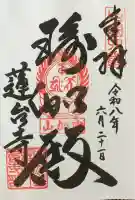 奉拝
令和八年
六月二十一日
瑜伽殿
蓮台寺